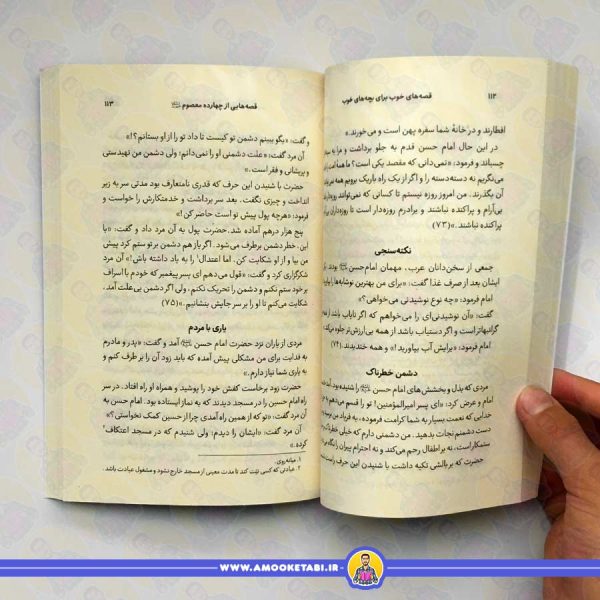 ۱۱۲
قصه‌های خوب برای بچه‌های خوب
افطارند و در خانهٔ شما سفره پهن است و می‌خورند.»
در این حال امام حسن قدم به جلو برداشت و مرا به
چسباند و فرمود: «نمی‌دانی که مقصد یکی است؟ ما همه
می‌نگریم نه دسته‌دسته را و اگر از یک راه باریک برویم همه
بگذرند. من امروز روزه نیستم تا کسانی که نمی‌توانند روزه
بی‌آرام و پراکنده نباشند و برادرم روزه‌دار است تا روزه‌داران
پراکنده نباشند.»(۷۳)
نکته‌سنجی
جمعی از سخن‌دانان عرب، مهمان امام‌حسن بودند
ایشان بعد از صرف غذا گفت: «برای من بهترین نوشابه‌ها را
امام فرمود: «چه نوع نوشیدنی می‌خواهی؟»
گفت: «آن نوشیدنی‌ای را می‌خواهم که اگر نایاب باشد از
گرانبهاتر است و اگر دستیاب باشد از همه بی‌ارزش‌تر جلوه
امام فرمود: «برایش آب بیاورید!» و همه خندیدند.(۷۴)
دشمن خطرناک
مردی که بذل و بخشش‌های امام حسن را شنیده بود
امام و عرض کرد: «ای پسر امیرالمؤمنین! تو را قسم می‌دهم
خدایی که نعمت بسیار به شما کرامت فرموده، به فریاد من
دست دشمنم نجات بدهید. من دشمنی دارم که خیلی خطرناک
ستمکار است، نه بر اطفال رحم می‌کند و نه احترام پیران را نگاه
حضرت که بر بالشی تکیه داشت با شنیدن این حرف راست
قصه‌هایی از چهارده معصوم
۱۱۳
و گفت: «بگو ببینم دشمن تو کیست تا داد تو را از او بستانم؟!»
آن مرد گفت: «علت دشمنی او را نمی‌دانم؛ ولی دشمن من تهیدستی
و پریشانی و فقر است.»
حضرت با شنیدن این حرف که قدری نامتعارف بود مدتی سر به زیر
انداخت و چیزی نگفت. بعد سر برداشت و خدمتکارش را خواست و
فرمود: «هرچه پول پیش تو است حاضر کن!»
پنج هزار درهم آماده شد. حضرت پول به آن مرد داد و گفت: «با
این، خطر دشمن برطرف می‌شود. اگر باز هم دشمن بر تو ستم کرد پیش
من بیا و از او شکایت کن. اما اعتدال۱ را به یاد داشته باش!» آن مرد
شکرگزاری کرد و گفت: «قول می‌دهم ای پسر پیغمبر که خودم با اسراف
بر خود ستم نکنم و دشمن را تحریک نکنم، ولی اگر دشمن بی‌علت آمد،
شکایت می‌کنم تا او را بر سر جایش بنشانیم.»(۷۵)
یاری با مردم
مردی از یاران نزد حضرت امام حسن آمد و گفت: «پدر و مادرم
به فدایت برای من مشکلی پیش آمده که باید زود آن را بر طرف کنم و
به یاری شما نیاز دارم.»
حضرت زود برخاست کفش خود را پوشید و همراه او راه افتاد. در سر
راه امام حسین را در مسجد دیدند که به نماز ایستاده بود. امام حسن به
آن مرد گفت: «تو که از همین راه آمدی چرا از حسین کمک نخواستی؟»
آن مرد گفت: «ایشان را دیدم؛ ولی شنیدم که در مسجد اعتکاف۲
کرده.»
۱. میانه‌روی.
۲. عبادتی که کسی نیّت کند تا مدت معینی از مسجد خارج نشود و مشغول عبادت باشد.
WWW.AMOOKETABI.IR